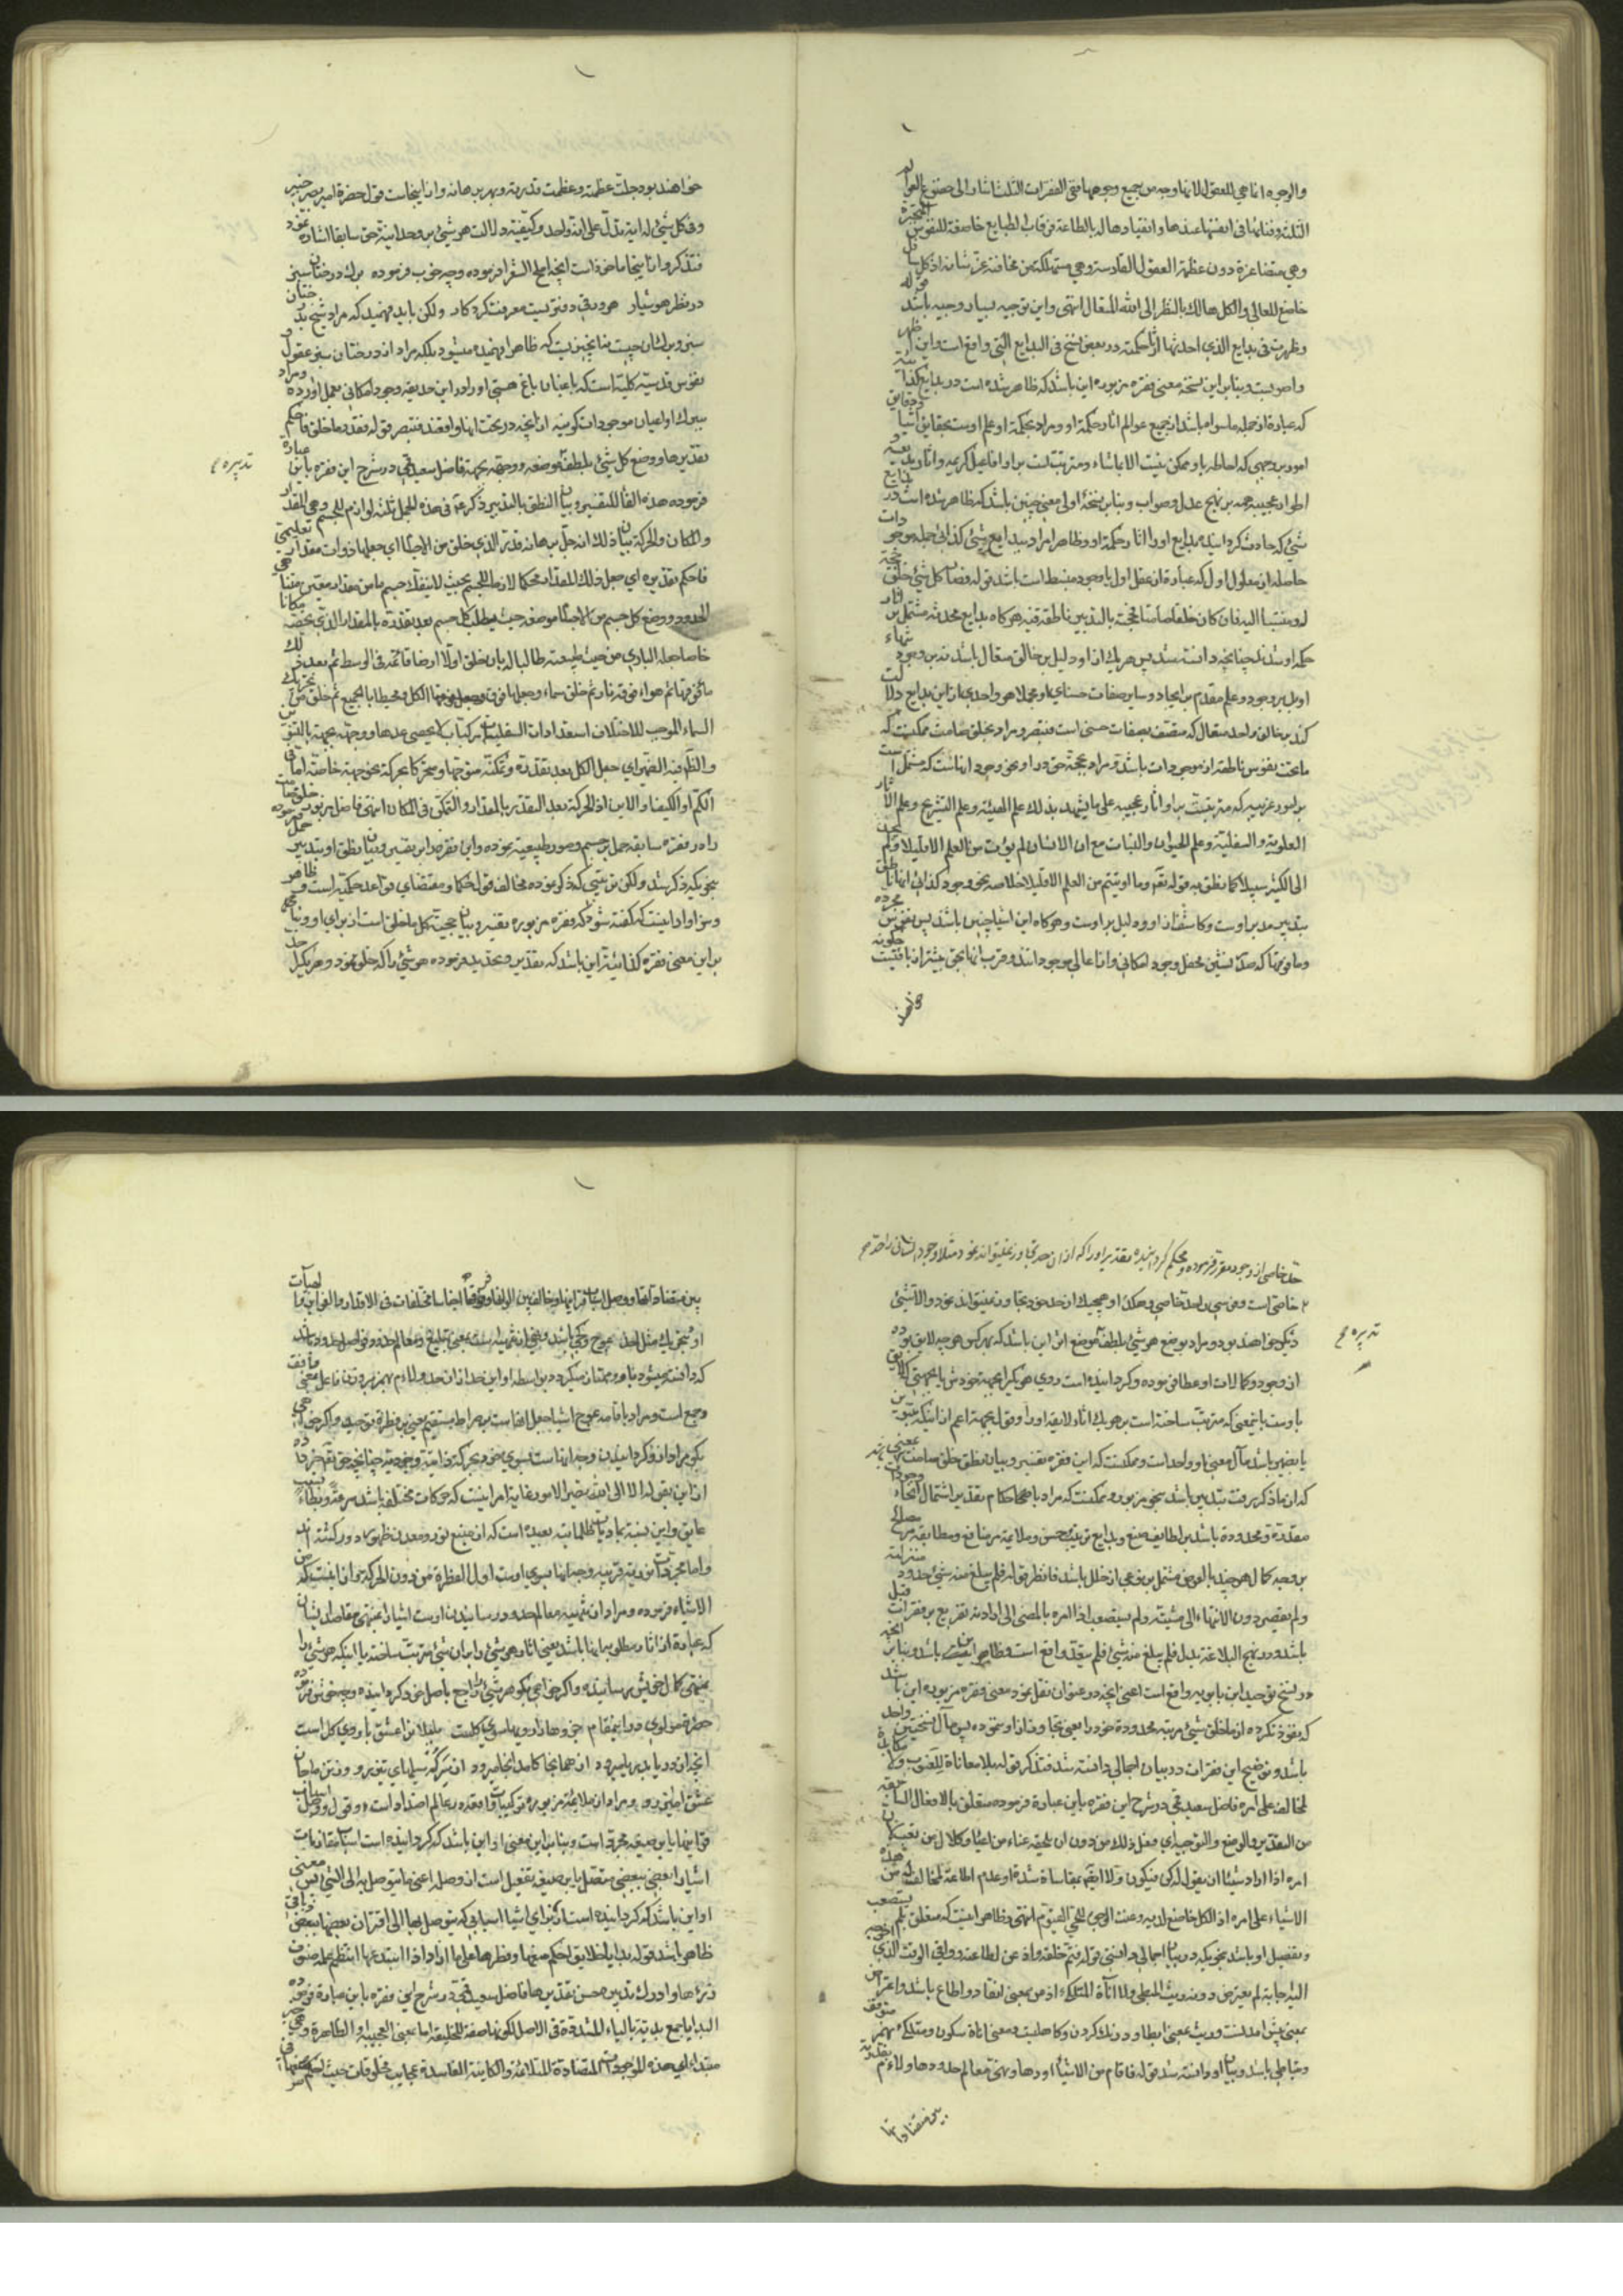 والوجوه انما هي للعقول لانها وجه من جميع وجوهها ففي الفقرات الثلث اشار الى خضوع العوالم
الثلثة وفنائها في انفسها عندها وانقيادها له بالطاعة فرقاب الطبايع خاضعة للنفوس المتحيرة
وهي متضاغرة دون عظمة العقول القادسة وهي مستهلكة من مخافة عزّ شانه اذ كل سافل
خاضع للعالي والكل هالك بالنظر الى الله المتعال انتهى واين توجيه بسيار وجيه باشد قوله
وظهرت في بدايع الذي احدثها آثار حكمته در بعض نسخ في البدايع التي واقع است واين ظهر
واصوبست وبنابر اين نسخه معنى فقره مزبوره اين باشد كه ظاهر شده است در بدايع كذائية
كه عبارة از جمله ماسوا باشد از جميع عوالم اثار حكمة او ومراد بحكمة او علم اوست بحقايق اشيا ودقايق
امور بر وجهي كه احاطه باو ممكن نيست الا بما شاء ومترتبست بر او افاعيل كريمه واثار بديعه و
اطوار عجيبه همه بر نهج عدل وصواب وبنابر نسخهٔ اولى معنى چنين باشد كه ظاهر شده است در بدايع
شيئ كه حادث كردانيده بدايع او را اثار حكمة او وظاهر مراد ببدايع شيئ كذائي جمله موجودات
حاصله از معلول اول كه عبارة از عقل اول يا وجود منبسط است باشد قوله فصار كل شيئ خلق حجة
له ومنتسبا اليه فان كان خلقا صامتا فحجته بالتدبير ناطقة فيه هركاه بدايع محدثه مشتمل بر اثار
حكمة او شد چنانچه دانسته شد پس هر يك از او دليل بر خالق متعال باشد بدين وجود
اوبل بر وجود وعلم مقدم بر ايجاد وساير صفات حسناى او ومجملا هر واحدى از اين بدايع دلالت
كند بر خالق واحد متعال كه متصف بصفات حسنى است فتبصر ومراد بخلق صامت ممكنست كه
ماتحت نفوس ناطقه از موجودات باشد ومراد بحجة حق در او نحو وجود انهاست كه مشتمل است
بر امور غريبه كه مترتبست بر او اثار عجيبه على ما يشهد بذلك علم الهيئة وعلم التشريح وعلم الاثار
العلوية والسفلية وعلم الحيوان والنبات مع ان الانسان لم يؤت من العلم الا قليلا ولم يجد
الى الكثير سبيلا كما نطق به قوله تعم وما اوتيتم من العلم الا قليلا خلاصه نحو وجود كذائي انها ناطق
بتدبير مدبر اوست وكاشف از او ودليل بر اوست وهركاه اين اشيا چنين باشد پس نفوس مجرده
وما فوقها كه صدر نشين محفل وجود امكاني واناعالي موجوداتند وقرب انها بحق بيشتر از باقيست چكونه
خواهند
خواهند بود جلّت عظمته وعظمت قدرته وبهر برهانه واز اينجاست قول حضرة امير بصير خبير
وفي كل شيئ له اية تدل على انه واحد وكيفيته دلالت هر شيئ بر وحدانية حق سابقا اشاره نمود
فتذكر واز اينجا ماخوذ است آنچه املح الشعرا فرموده وچه خوب فرموده برك درختان سبز
در نظر هوشيار هر ورقي دفتريست معرفت كردكار ولكن بايد فهميد كه مراد شيخ بدرختان
سبز وبرك ان چيست بنا نچنين نيست كه ظاهرا فهميده ميشود بلكه مراد از درختان سبز عقول و
نفوس قدسيه كليه است كه باغبان باغ هستي او را در اين حديقه وجود امكاني بعمل آورده ومراد
ببرك او اعيان موجودات كونيه از آنچه در تحت انها واقعند فتبصر قوله فقدر ما خلق فاحكم
تقديرها ووضع كل شيئ بلطفه موضعه ووجهه بجهة فاضل سعيد قمي در شرح اين فقره باين عبارة
تدبيره م
فرموده هذه الفا للتفسير وبيان النطق بالتدبير وذكر عم في هذه الجمل ثلثه لوازم للجسم وهي المقدار
والمكان والحركة بيان ذلك انه جل برهانه قدّر الذي خلق من الاجسام اي جعلها ذوات مقدار تعليمي
فاحكم تقديره اي جعل ذلك المقدار محكما لازما للجسم بحيث لا ينفك جسم ما من مقدار معين متناهي
الحدود ووضع كل جسم من الاجسام موضعه حيث يطلب كل جسم بعد تقدره بالمقدار الذي يخصه مكانا
خاصا جعله الباري من حيث طبيعته طالبا له بان خلق اولا ارضا قائمة في الوسط ثم بعد ذلك
ماء فوقها ثم هواء فوقه نار ثم خلق سماء وجعلها فوق الكل ومحيطا بالجميع ثم خلق من تحريك
السماء الموجب لاختلاف استعدادات السفليات مركبات لا يحصى عددها ووجهه بجهة بالتنوين
والظرفية الضهير اي جعل الكل بعد تقدره وتمكنه متوجها ومتحركا بحركة نحو جهة خاصة اما في
الكم او الكيف او الاين اذ الحركة بعد التقدر بالمقدار والتمكن في المكان انتهى فاضل مزبور خلق صامت
را در فقره سابقه حمل بر جسم وصور طبيعيه نموده واين فقره را بر تفسير وبيان نطق او بتدبير حمل فرموده
بنحويكه ذكر شد ولكن ترتيبي كه ذكر نموده مخالف قول حكما ومقتضاي قواعد حكميه است وظاهر
وسزاوار اينست كه كفته شود كه فقره مزبوره تفسير وبيان حجيت كل ما خلق است از براي او وبنا
بر اين معنى فقره كذائيه اين باشد كه تقدير وتحديد فرموده هر شيئ را كه خلق نمود وهر يك را حد
حدّ خاصى از وجود مقرر فرموده ومحكم كردانيده تقدير او را كه از ان حد تجاوز نميتواند نمود مثلا وجود انسان را حد
خاصى است وفرس را حد خاصى وهكذا وهيچيك از حد خود تجاوز نميتواند نمود والا شيئ
ديكر خواهند بود ومراد بوضع هر شيئ بلطفه موضع ان اين باشد كه بهر كس هر چه لايق بوده
تدبيره م
از وجود وكمالات او عطا فرموده وكردانيده است روي هر يك را بجهة خودش يا بجهتي كه لايق
باوست باينمعنى كه مترتب ساخته است بر هر يك اثار لايقه او را وقوله بجهة اعم از اينكه بتنوين
يا بضمير باشد مآل معنى او واحد است وممكنست كه اين فقره تفسير وبيان نطق خلق صامت بمعنى
كه از ما ذكر رفت بتدبير باشد بنحو مزبور وممكنست كه مراد باحكام تقدير اشتمال انحاء وجودات
مقدرة ومحدودة باشد بر لطايف صنع وبدايع ترتيب حسن وملايمة بر منافع ومطابقه مصالح
بر وجه كمال هر چند بالعرض مشتمل بر نوعي از خلل باشد فانظر قوله فلم يبلغ منه شيئ حدود منزلته
ولم يقصر دون الانتهاء الى مشيته ولم يستصعب اذ امره بالمضي الى ارادته تفريع بر فقرات قبل
باشد ودر نهج البلاغة بدل فلم يبلغ منه شيئ فلم يتعد واقع است وظاهر اينست باشد وبنابر انچه
در نسخ توحيد ابن بابويه واقع است اعني انچه در عنوان نقل نمود معنى فقره مزبوره اين باشد
كه نفوذ نكرده از ما خلق شيئ مرتبه محدودة خود را يعنى تجاوز از او ننموده پس مآل نسختين واحد
باشد وتوضيح اين فقرات در بيان اجمالي دانسته شد فتذكر قوله بلا معاناة للغوب ولا مكايدة
لمخالف على امره فاضل سعيد قمي در شرح اين فقره باين عبارة فرموده متعلق بالافعال السابقة
من التقدير والوضع والتوجيه اي فعل ذلك من دون ان يلحقه عناء من اعياء وكلال من تعب كان
امره اذا اراد شيئا ان يقول له كن فيكون ولا ايضا بمقاساة شدة او عدم اطاعة لمخالفة من هذه
الاشياء على امره اذ الكل خاضع لديه وعنت الوجوه للحي القيوم انتهى وظاهر اينست كه متعلق بلم يستصعب
وتفصيل او باشد بنحويكه در بيان اجمالي دانستى قوله فتم خلقه واذعن لطاعته ووافى الوقت الذي اخرجه
اليه اجابة لم يعترض دونه ريث المبطي ولا اناة المتلكئ اذعن بمعنى انقاد واطاع باشد واعترض
بمعنى پيش امدنست وريث بمعنى ابطا ودرنك كردن وكاهليست ومعنى اناة سكون ومتلكئ بهمز متوقف
ومتباطي باشد وبيان او دانسته شد قوله فاقام من الاشياء اودها ونهى معالم حدودها ولاءم بقدرته
بين متضاداتها
بين متضاداتها ووصل اسباب قرائنها وخالف بين الوانها وفرقها اجناسا مختلفات في الاقدار والغرايز والهيآت
كه دانسته ميشود باو وممتاز ميكردد بواسطه او اين حد از ان حد ولاءم بهمز بر وزن فاعل بمعنى وافق
وجمع است ومراد باقامه عوج اشيا جعل انهاست بر صراط مستقيم يعنى بر فطرة توحيد واكر خواهي
بكو مراد از او كردانيدن وجه انهاست بسوي خود بحركة ذاتية وجوديه چنانچه حق تعم خبر داده
از اين بقوله الا الى الله تصير الامور غاية امر اينست كه حركات مختلف باشد سرعة وبطاء بسبب
عايق واين نسبة بماديات ظلمانيه بعيده است كه از منبع نور ومعدن ظهور دور كشته اند
الاشياء فرموده ومراد از تنهيه معالم حدود رسانيدن اوست اشيا را بمنتهى مقاصد ايشان
كه عبارة از اثار مطلوبه از انها باشد يعنى اثار هر شيئ را بر ان شيئ مترتب ساخته يا اينكه هر شيئ را
بمنتهى كمال خويش رسانيده واكر خواهي بكو هر شيئ را راجع باصل خود كردانيده وچه خوش فرموده
حضرة مولوي در اينمقام جزوها را رويها سوي كلست بلبلان را عشق با روي كل است
انچه از دريا بدريا ميرود از همانجا كامد انجا ميرود از سر كه سيلهاي تيز رو وزتن ما جان
عشق اميز رو ومراد از ملايمه مزبوره تركيبات واقعه در عالم اضداد است وقوله ووصل اسباب
قرائنها باين صيغه مجرد است وبنابر اين معنى او اين باشد كه كردانيده است اسباب مقارنات
اشيا را بعضى ببعضى متصل باين صيغه تفعيل است از وصله اعني ما يتوصل به الى الشيئ پس معنى
او اين باشد كه كردانيده است از براي اشيا اسبابي كه يتوصل بها الى اقتران بعضها ببعض
ظاهر باشد قوله بدايا خلايق احكم صنعها وفطرها على ما اراد اذ ابتدعها انتظم علمه صنوف
ذرئها وادرك تدبيره حسن تقديرها فاضل سعيد قمي در شرح اين فقره باين عبارة فرموده
البدايا جمع بدية بالياء المشددة في الاصل لكونها صفة للخليقة اما بمعنى العجيبة او الظاهرة وهي خبر
مبتداء اي هذه الموجودات المتضادة المتلائمة والكاينة الفاسدة عجايب مخلوقات حيث احكم صنعها